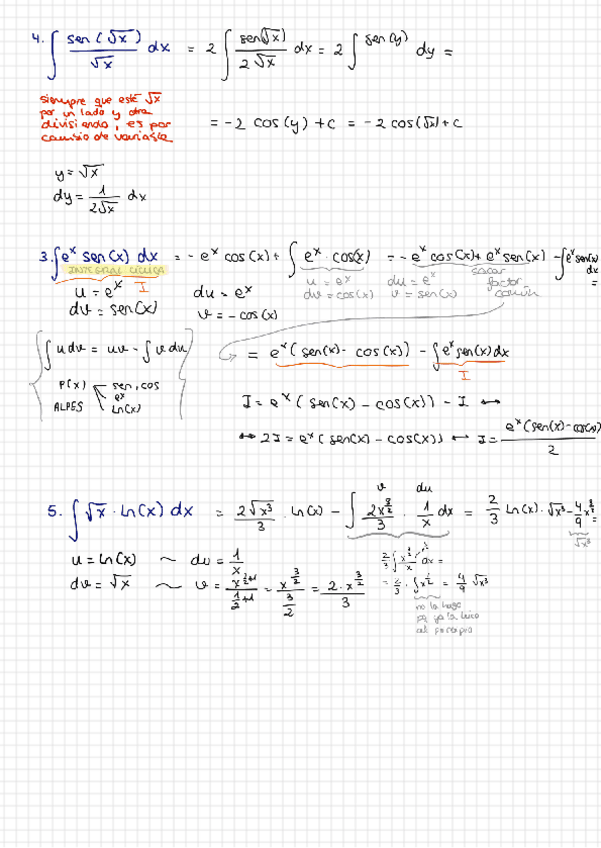 4. ∫ sen(√x)/√x dx = 2 ∫ sen(√x)/2√x dx = 2 ∫ sen(y) dy =
siempre que esté √x
por un lado y otra
dividiendo, es por
cambio de variable
= -2 cos(y) + c = -2 cos(√x) + c
y = √x
dy = 1/2√x dx
3. ∫ e^x sen(x) dx = - e^x cos(x) + ∫ e^x cos(x) = - e^x cos(x) + e^x sen(x) - ∫ e^x sen(x) dx =
INTEGRAL CÍCLICA
I
u = e^x du = e^x
dv = sen(x) v = - cos(x)
u = e^x du = e^x
dv = cos(x) v = sen(x)
sacar
factor
común
∫ u dv = uv - ∫ v du
P(x) sen, cos
e^x
ALPES Ln(x)
= e^x (sen(x) - cos(x)) - ∫ e^x sen(x) dx
I
I = e^x (sen(x) - cos(x)) - I ↔
↔ 2I = e^x (sen(x) - cos(x)) ↔ I = e^x (sen(x) - cos(x))/2
5. ∫ √x · Ln(x) dx = 2√x³/3 · Ln(x) - ∫ 2x^(3/2)/3 · 1/x dx = 2/3 Ln(x) · √x³ - 4/9 x^(3/2) =
v du
√x³
u = Ln(x) ~ du = 1/x
dv = √x ~ v = x^(1/2+1)/(1/2+1) = x^(3/2)/(3/2) = 2·x^(3/2)/3
2/3 ∫ x^(3/2)/x dx =
= 2/3 · ∫ x^(1/2) = 4/9 √x³
no lo hago
pq ya la hice
al